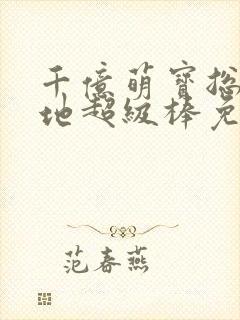 千億萌寶
地超級棒
范春燕